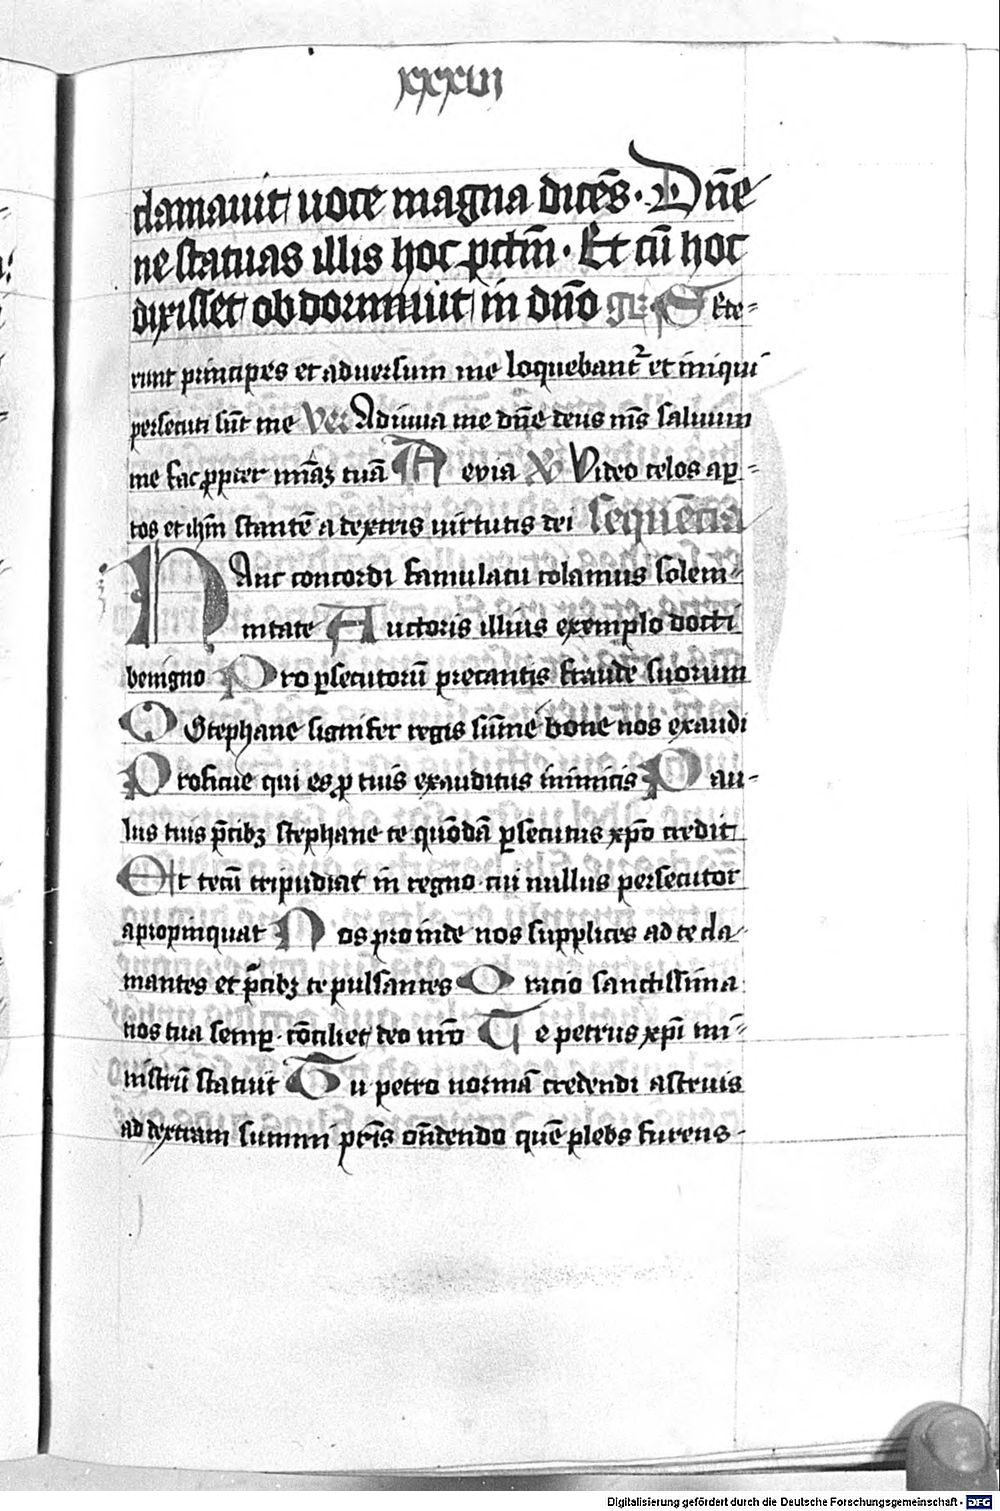 xxxvi
clamauit uoce magna dicēs · Dn̄e
ne statuas illis hoc pctm̄ · Et cū hoc
dixisset obdormiuit in dn̄o gr̄ Sede-
runt principes et aduersum me loquebant᷑ et iniqui
persecuti sūt me Ver Adiuua me dn̄e deus m̄s saluum
me fac ꝓpter mīāꝫ tuā Aeuia V Video celos aꝑ-
tos et ih̄m stantē a dextris uirtutis dei Sequēcia
Hanc concordi famulatu colamus solem-
nitate Auctoris illius exemplo docti
benigno Pro ꝑsecutorū precantis fraude suorum
O Stephane signifer regis sūme bone nos exaudi
Proficue qui es ꝓ tuis exauditus inimicis Pau-
lus tuis p̄cibꝫ stephane te quōdā ꝑsecutus xp̄o credit
Et tecū tripudiat in regno cui nullus persecutor
apropinquat Nos proinde nos supplices ad te cla-
mantes et p̄cibꝫ te pulsantes Oracio sanctissima
nos tua semꝑ · cōciliet deo nr̄o Te petrus xp̄i mi-
nistrū statuit Tu petro normā credendi astruis
ad dextram summi pr̄is on̄dendo quē plebs furens -
Digitalisierung gefördert durch die Deutsche Forschungsgemeinschaft - DFG